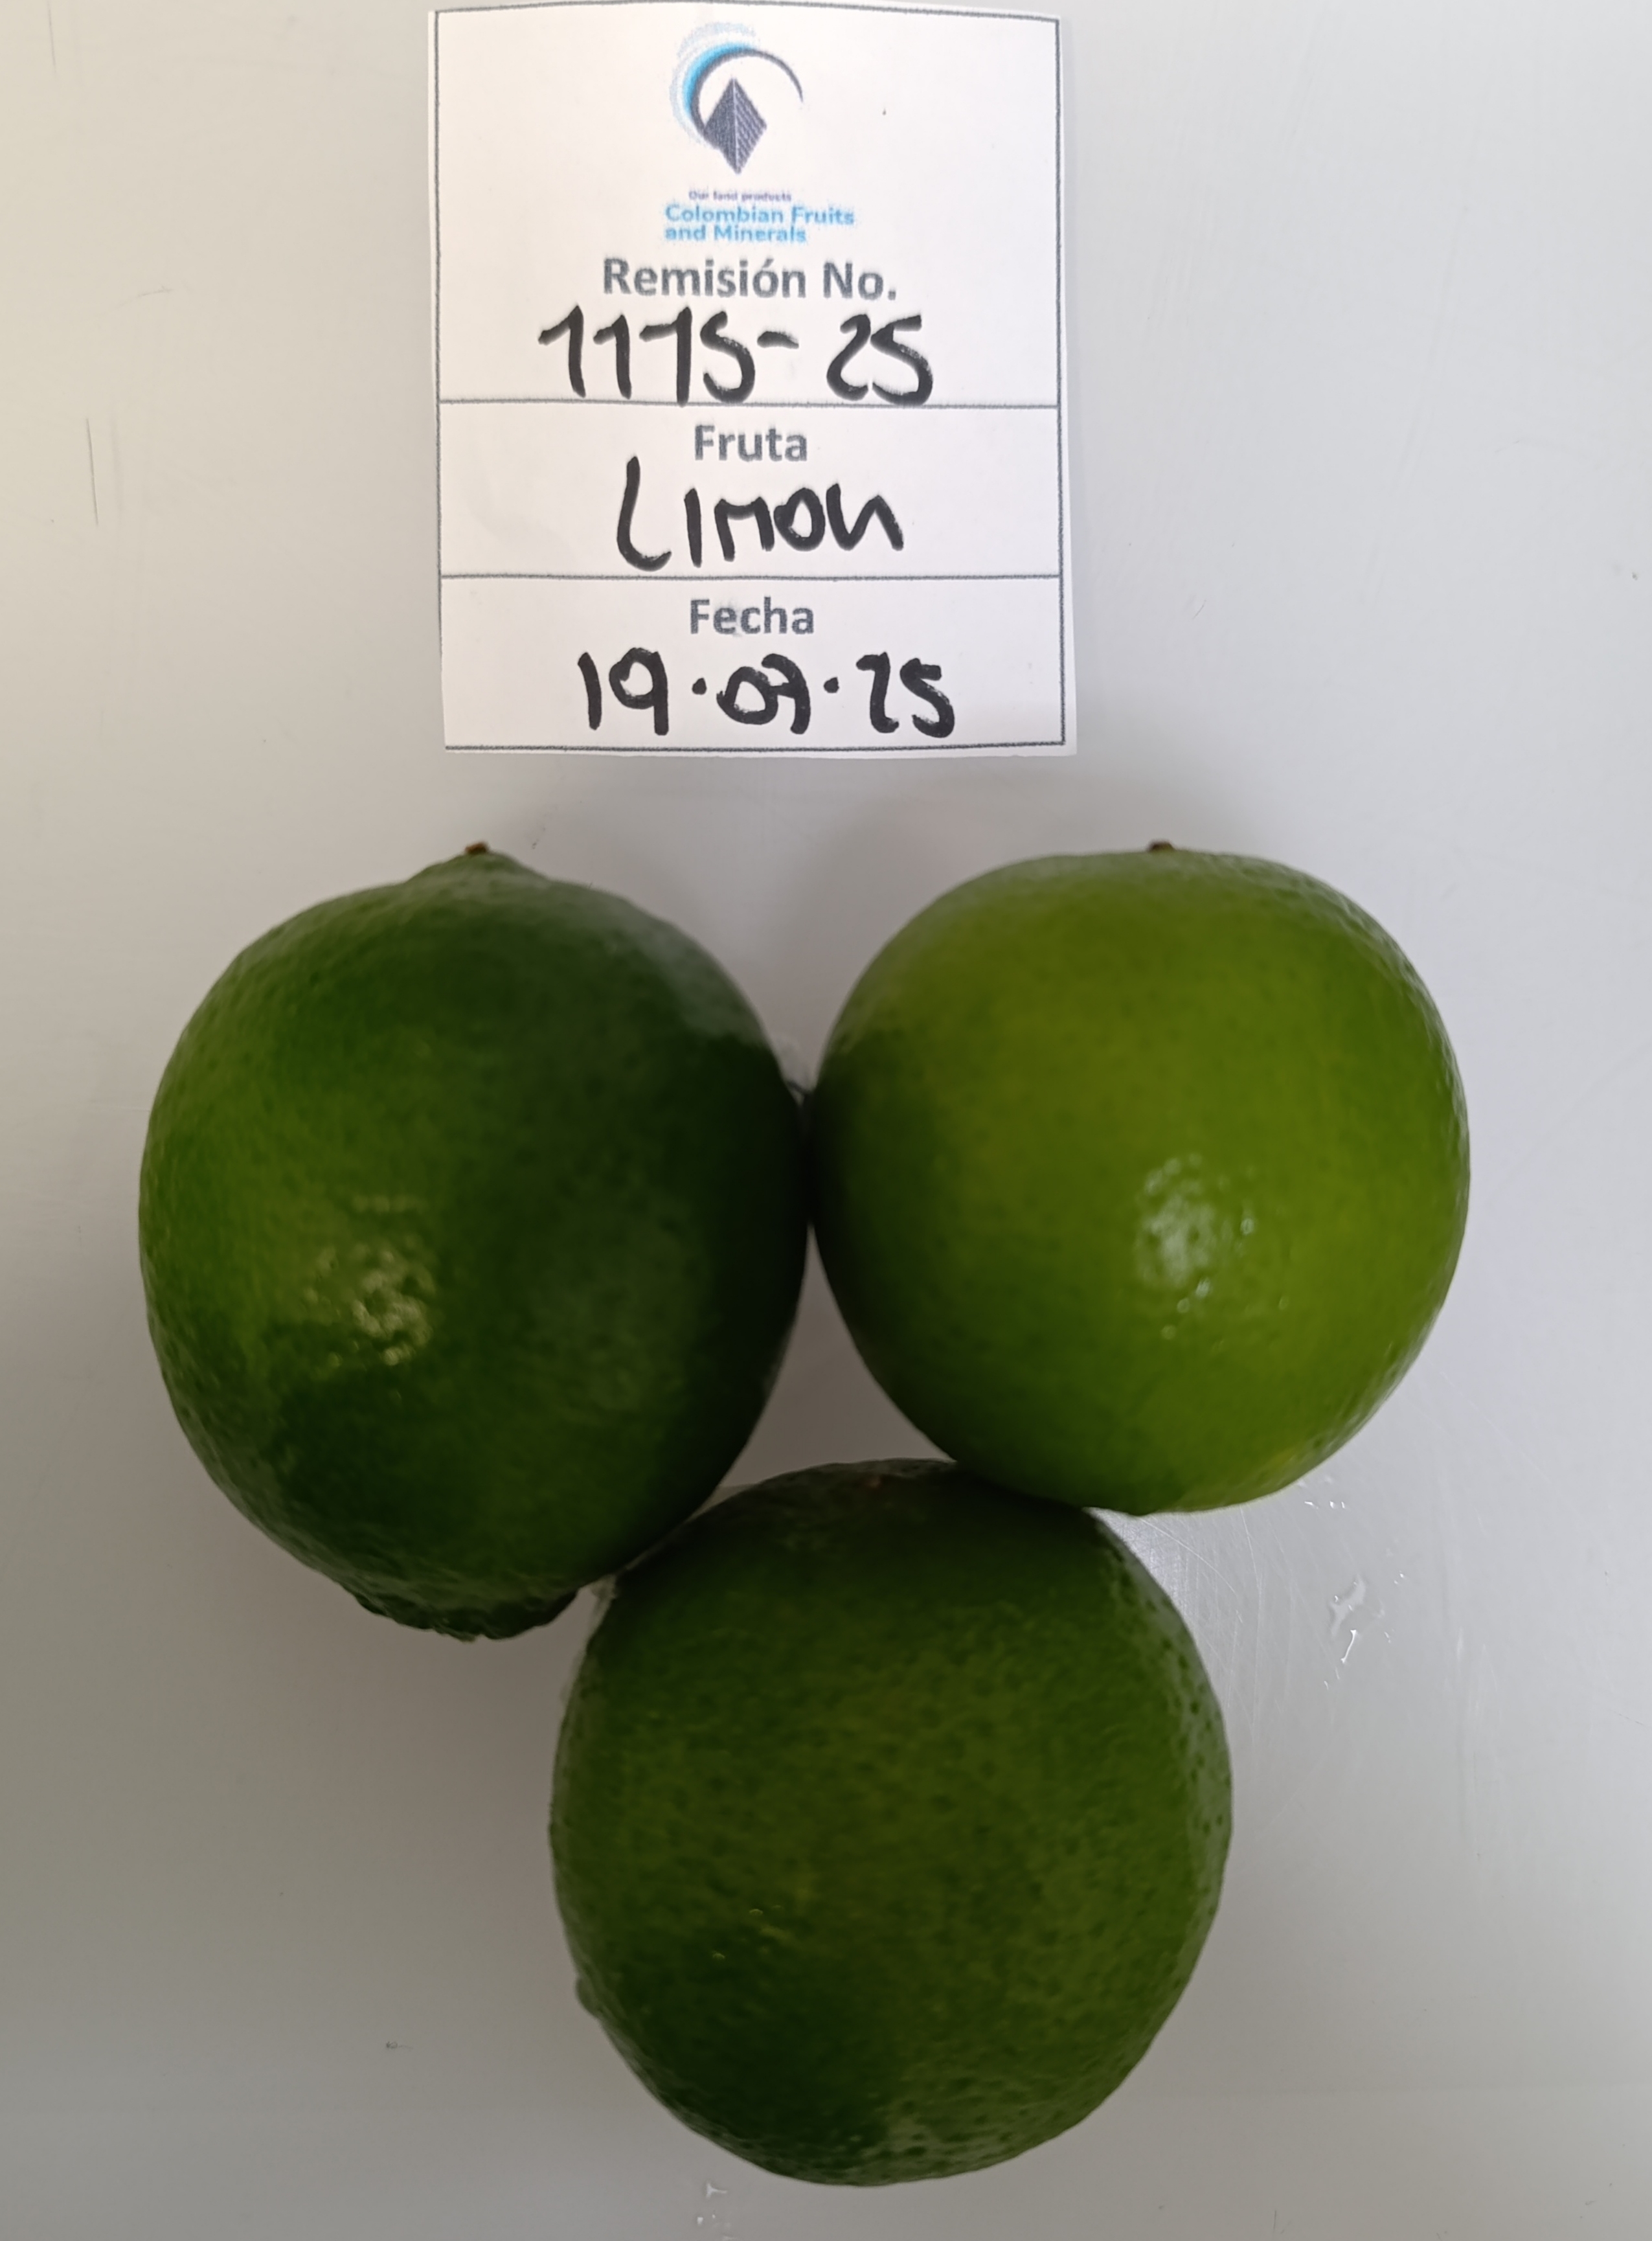 Our land products
Colombian Fruits
and Minerals
Remisión No.
1175-25
Fruta
Limon
Fecha
19.07.25